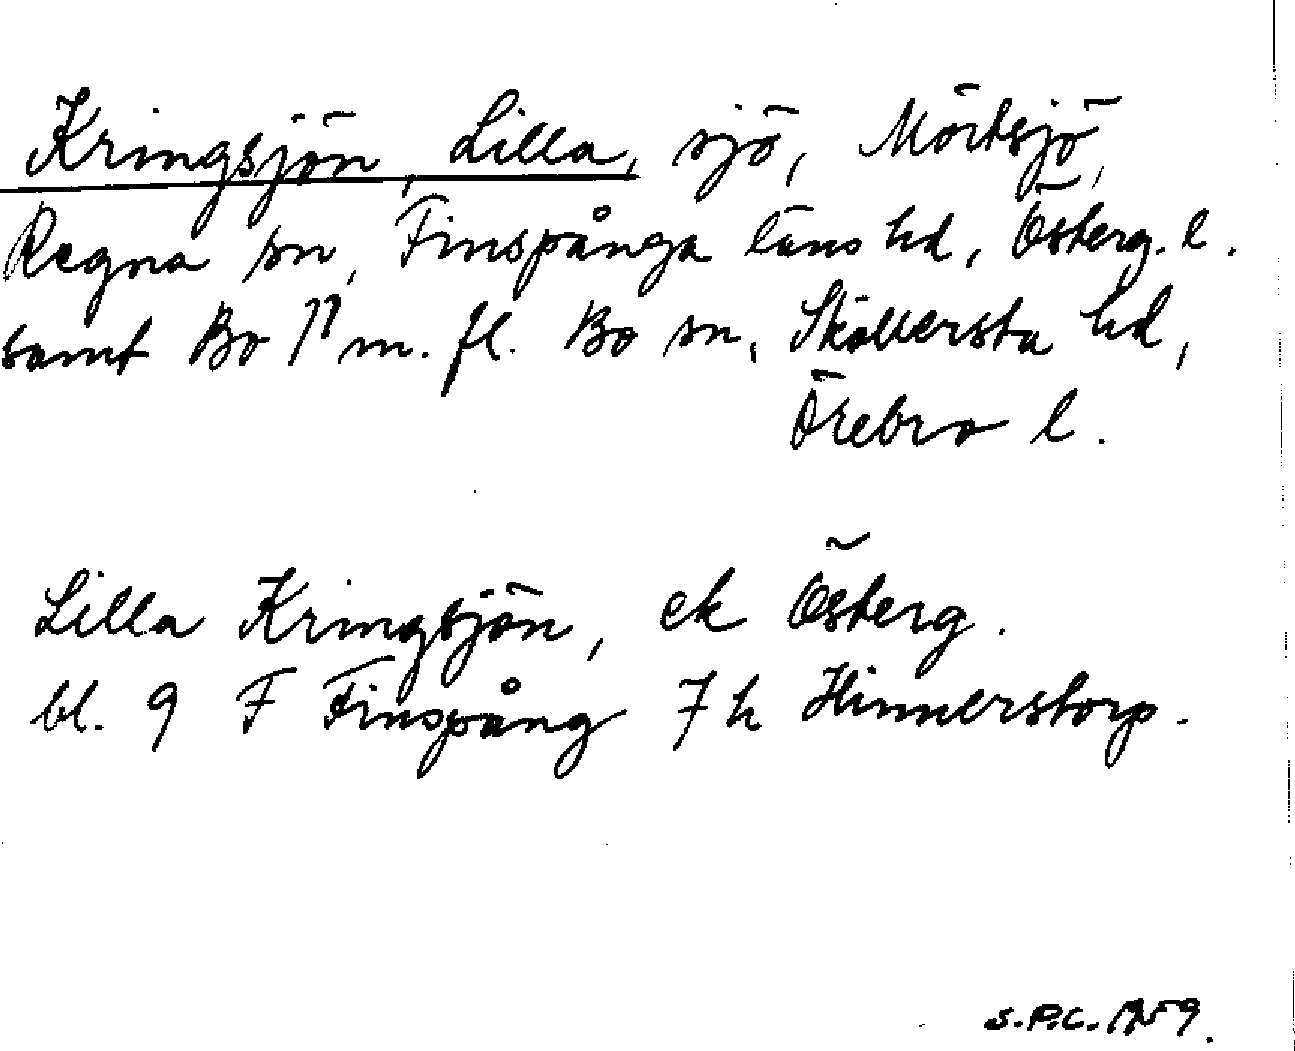 Kringsjön, Lilla, sjö, Mörtsjö,
Regna sn, Finspånga läns hd, Österg. l.
samt Bo 1¹ m. fl. Bo sn, Sköllersta hd,
Örebro l.
Lilla Kringsjön, ek Österg.
bl. 9 F Finspång 7h Hinnerstorp.
S.P.C. 1959.